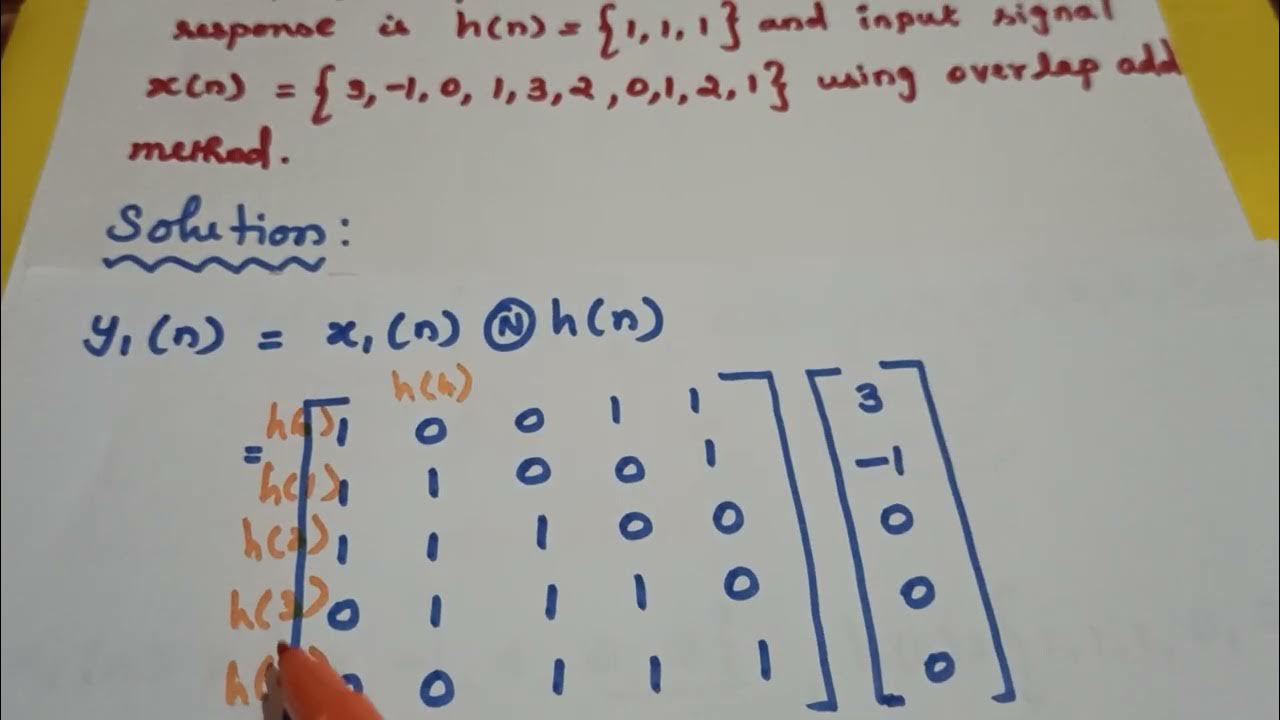 response is h(n) = {1, 1, 1} and input signal
x(n) = {3, -1, 0, 1, 3, 2, 0, 1, 2, 1} using overlap add
method.
Solution:
y₁(n) = x₁(n) Ⓝ h(n)
h(4)
= 1 0 0 1 1 3
h(1) 1 1 0 0 1 -1
h(2) 1 1 1 0 0 0
h(3) 0 1 1 1 0 0
0 1 1 1 0